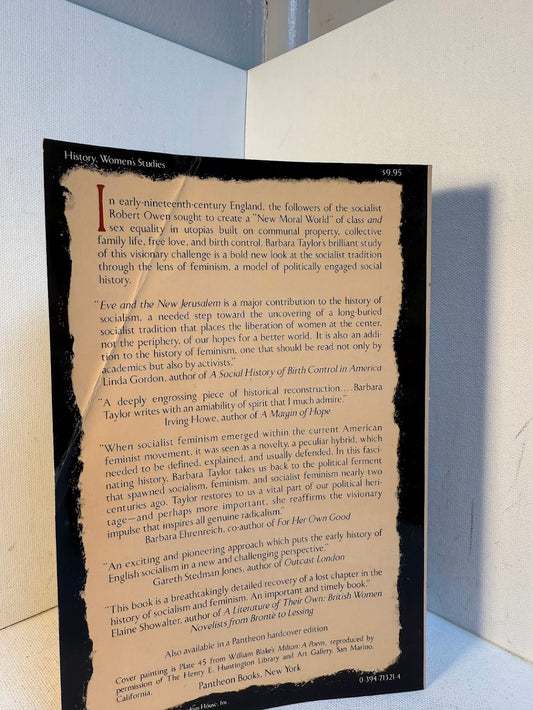 History, Women's Studies
$9.95
In early-nineteenth-century England, the followers of the socialist
Robert Owen sought to create a "New Moral World" of class and
sex equality in utopias built on communal property, collective
family life, free love, and birth control. Barbara Taylor's brilliant study
of this visionary challenge is a bold new look at the socialist tradition
through the lens of feminism, a model of politically engaged social
history.
"Eve and the New Jerusalem is a major contribution to the history of
socialism, a needed step toward the uncovering of a long-buried
socialist tradition that places the liberation of women at the center,
not the periphery, of our hopes for a better world. It is also an addi-
tion to the history of feminism, one that should be read not only by
academics but also by activists."
Linda Gordon, author of A Social History of Birth Control in America
"A deeply engrossing piece of historical reconstruction.... Barbara
Taylor writes with an amiability of spirit that I much admire."
Irving Howe, author of A Margin of Hope
"When socialist feminism emerged within the current American
feminist movement, it was seen as a novelty, a peculiar hybrid, which
needed to be defined, explained, and usually defended. In this fasci-
nating history, Barbara Taylor takes us back to the political ferment
that spawned socialism, feminism, and socialist feminism nearly two
centuries ago. Taylor restores to us a vital part of our political heri-
tage—and perhaps more important, she reaffirms the visionary
impulse that inspires all genuine radicalism."
Barbara Ehrenreich, co-author of For Her Own Good
"An exciting and pioneering approach which puts the early history of
English socialism in a new and challenging perspective."
Gareth Stedman Jones, author of Outcast London
"This book is a breathtakingly detailed recovery of a lost chapter in the
history of socialism and feminism. An important and timely book."
Elaine Showalter, author of A Literature of Their Own: British Women
Novelists from Brontë to Lessing
Also available in a Pantheon hardcover edition
Cover painting is Plate 45 from William Blake's Milton: A Poem, reproduced by
permission of The Henry E. Huntington Library and Art Gallery, San Marino,
California.
Pantheon Books, New York
0-394-71321-4
House, Inc.